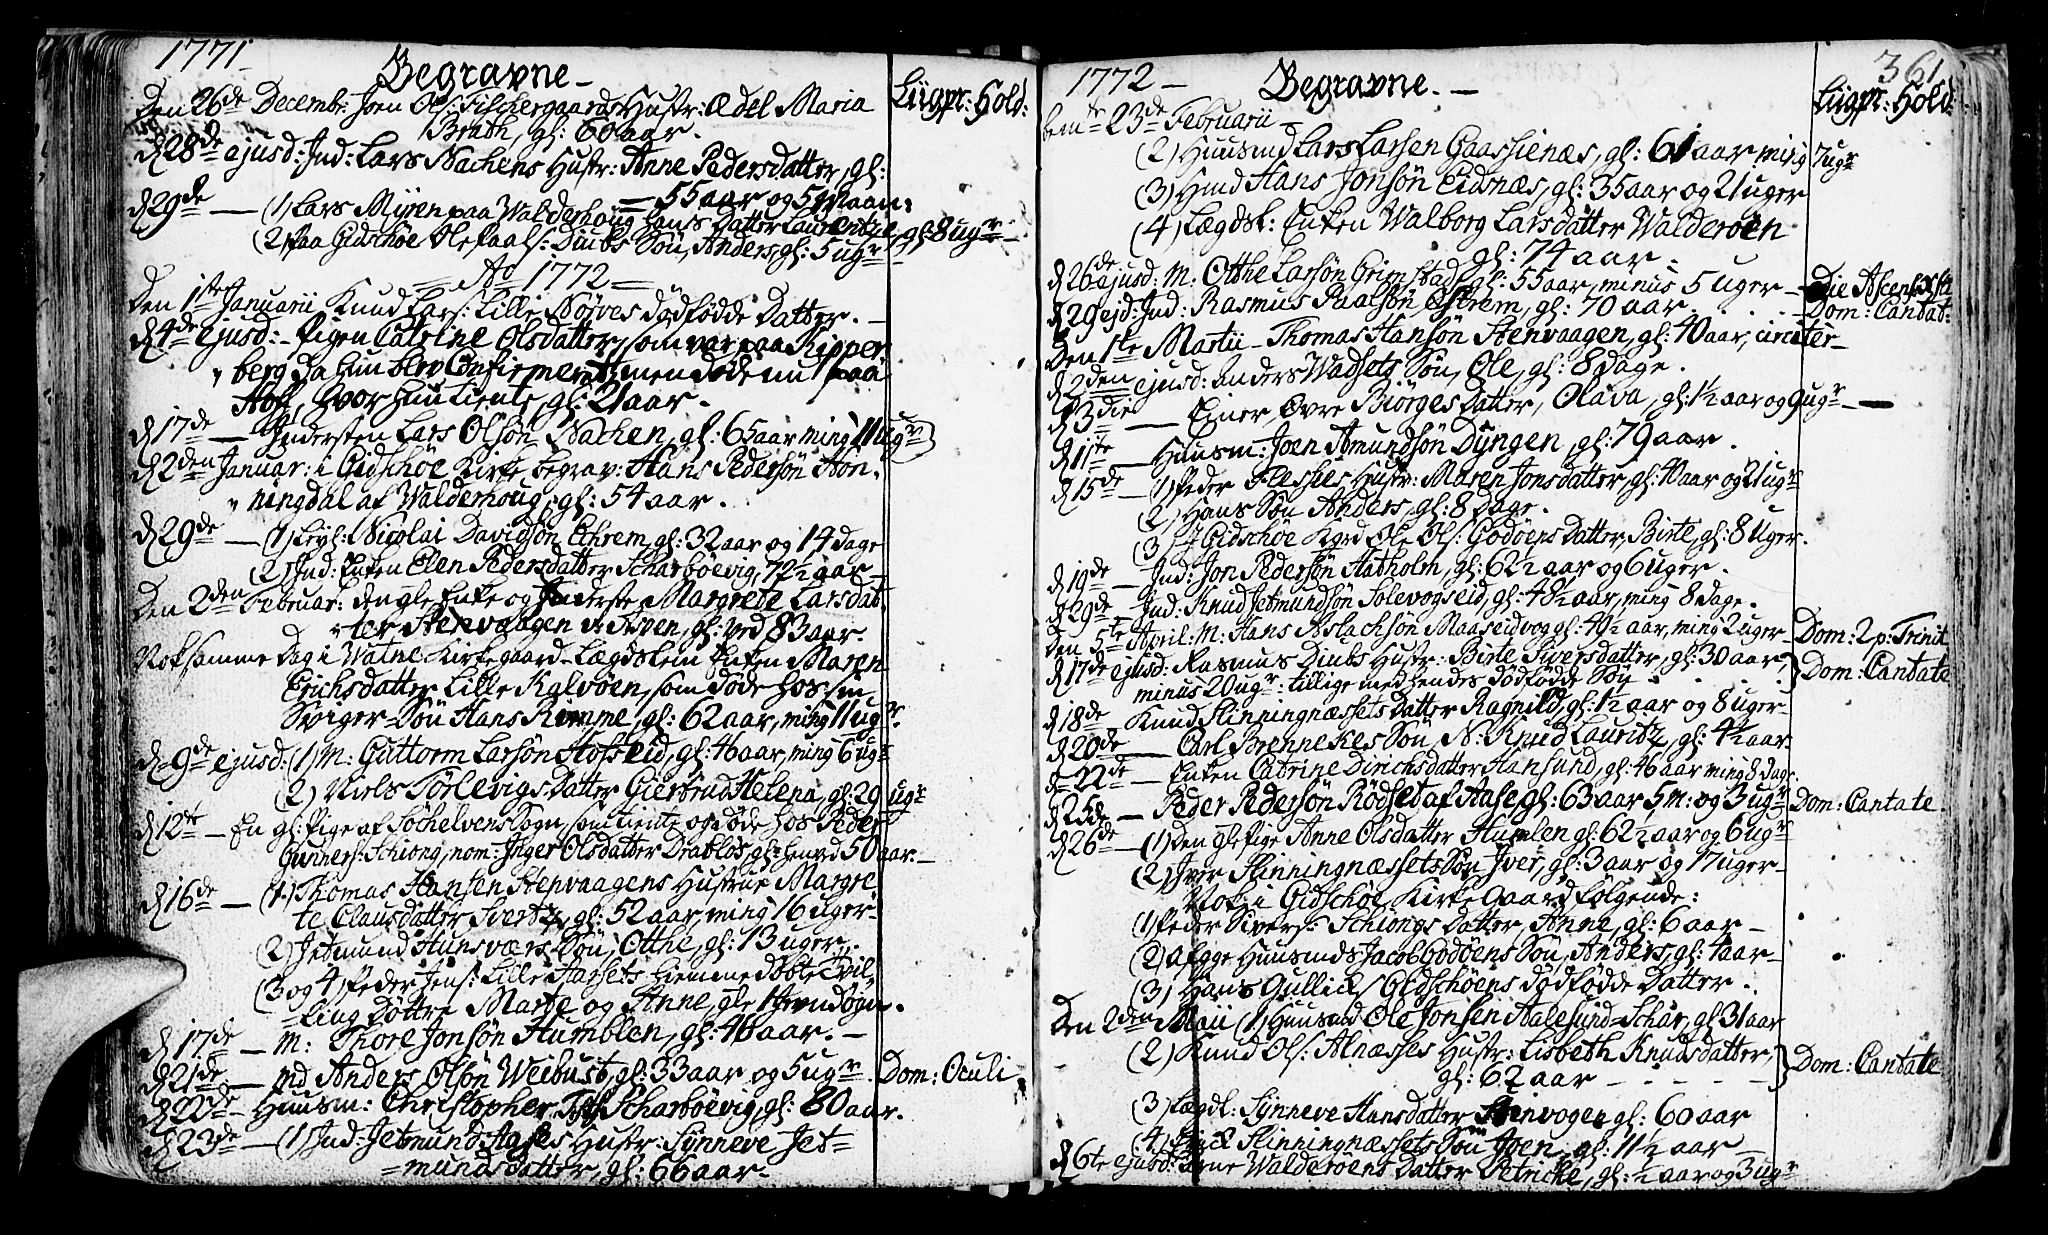 1771.
Begravne - Liigpr: Hold:
Den 26de Decembr: Joen Ols: Fischergaards Hustr: Ædel Maria
Brath, gl: 60 aar.
d 28de ejusd: Ind: Lars Nachens Hustr: Anne Pedersdatter, gl:
55 aar og 5 Maan:
d 29de — (1) Lars Myren paa Walderhoug hans Datter Laurentze, gl: 8 ugr
(2) paa Gidschöe Ole Paals: Diubs Sön, Anders, gl: 5 ugr
= Ao 1772 =
Den 1ste Januarii Knud Lars: Lille Nörves dödfödde Datter. -
d 4de ejusd: - Pigen Catrine Olsdatter, som var paa Kipper
berg da hun blev Confirmeret, men döde nu paa
Hof, hvor hun tiente, gl: 21 aar.
d 17de — Indersten Lars Olsön Nachen, gl: 65 aar ming 11 ugr
d 2den Januar: i Gidschöe Kirke begrav: Hans Pedersön Hon-
ningdal af Walderhoug, gl: 54 aar.
d 29de — (1) Leyl: Nicolai Davidsön Echrem, gl: 32 aar og 14 dage
(2) Ind: Enken Elen Pedersdatter Scharböevig, 77½ aar -
Den 2den Februar: den gle Enke og Inderste Margrete Larsdat-
ter Stenvaagen v: Aspen, gl: ved 83 aar.
Nok samme Dag i Watne Kirkegaard - Lægdslem Enken Maren
Erichsdatter Lille Kalvöen, som döde hos sin
Sviger-Sön Hans Rimme, gl: 62 aar, ming 11 ugr.
d 9de ejusd: (1) M: Guttorm Larsön Hofseid, gl: 46 aar, ming 6 ugr
(2) Niels Sörlevigs Datter Giertrud Helena, gl: 29 ugr
d 12te — En gl: Pige af Söchelvens Sogn, som tiente og döde hos Peder
Gunners: Schiong, nom: Inger Olsdatter Drablös, gl: henved 50 aar. -
d 16de — (1) Thomas Hansen Stenvaagens Hustrue Margre-
te Clausdatter Svertz, gl: 52 aar, ming 16 uger -
(2) Jetmund Hunsværs Sön, Otthe, gl: 13 uger.
(3 og 4) Peder Jens: Lille Aarsets hiemme döbte Tvil-
ling Döttre Marte og Anne, gle 1 Jevndögn.
d 17de — M: Thore Jonsön Humblen, gl: 46 aar. -
d 21de — md Anders Olsön Weibust, gl: 33 aar og 5 ugr. Dom: Oculi
d 22de - Huusm: Christopher Scharböevig, gl: 80 aar.
d 23de — (1) Ind: Jetmund Aases Hustr: Synneve Jet=
=mundsdatter, gl: 66 aar. -
1772 - Begravne. - 361
Liigpr: Hold:
bemte 23de Februarii -
(2) Huusmd Lars Larsen Gaassienæs, gl: 61 aar ming 7 ugr
(3) Hmd Hans Jonsön Eidsnæs, gl: 35 aar og 21 uger
(4) Lægdsl: Enken Walborg Larsdatter Walderöen
gl: 74 aar.
d 26de ejusd: M: Otthe Larsön Grimstad, gl: 55 aar, minus 5 uger - Die Ascens
d 29 ejd: Ind: Rasmus Paalsön Östrem, gl: 70 aar. Dom: Cantat:
Den 1te Martii - Thomas Hansön Stenvaagen, gl: 40 aar, circiter -
d 2den ejusd: Anders Wadsets Sön, Ole, gl: 8 dage.
d 3die — Einer Övre Biörges Datter, Olava, gl: 1½ aar og 9 ugr -
d 11te — Huusm: Joen Amundsön Dyngen, gl: 79 aar.
d 15de — (1) Peder Flessies Hustr: Maren Jonsdatter, gl: 40 aar og 21 ugr
(2) Hans Sön Anders, gl: 8 Dage.
(3) I Gidschöe Kgrd Ole Ols: Godöens Datter, Birte, gl: 8 Uger.
d 19de — Ind: Jon Pedersön Hatholm, gl: 62½ aar og 6 uger.
d 29de — Ind: Knud Jetmundsön Solevogseid, gl: 48½ aar, ming 8 dage.
Den 5te April: M: Hans Aslachsön Maaseidvog gl: 49½ aar, ming 2 uger - Dom: 2 p: Trinit
d 17de ejusd: Rasmus Diubs Hustr: Birte Siversdatter, gl: 30 aar, Dom: Cantate
minus 20 ugr: tillige med hendes dödfödde Sön
d 18de Knud Slinningnæssets Datter Ragnild, gl: 1½ aar og 8 uger -
d 20de — Carl Brennekes Sön, N: Knud Lauritz, gl: 4½ aar.
d 22de — Enken Catrine Dirichsdatter Hansund, gl: 46 aar ming 8 dage.
d 25de — Peder Pedersön Rödset af Aase gl: 63 aar, 5 m: og 3 ugr Dom: Cantate.
d 26de — (1) Den gle Pige Anne Olsdatter Humlen gl: 62½ aar og 6 ugr
(2) Iver Slinningnæssets Sön Iver, gl: 3 aar og 17 uger -
Nok i Gidschöe Kirke Gaard fölgende:
(1) Peder Sivers: Schiongs Datter, Anne, gl: 6 aar -
(2) Afgge Huusmds Jacob Godöens Sön, Anders, gl: 4 aar -
(3) Hans Gullich Gidschöens dödfödde Datter.
Den 2den Maii (1) Huusmd Ole Jonsen Aalesund=Schar, gl: 31 aar
(2) Knud Ols: Alnæsses Hustr: Lisbeth Knudsdatter,
gl: 62 aar - Dom: Cantate
(3) Lægdl: Synneve Hansdatter Stinvogen gl: 60 aar
(4) Erick Slinningnæssets Sön Joen, gl: 11½ aar -
d 6te ejusd: Arne Walderöens Datter Petricke, gl: ½ aar og 3 ugr